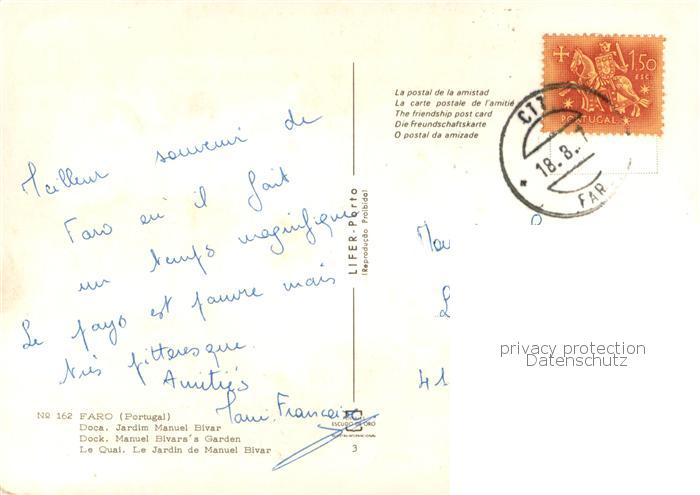 Meilleur souvenir de
Faro où il fait
un temps magnifique
Le pays est pauvre mais
très pittoresque.
Amitiés
Françoise
Nº 162 FARO (Portugal)
Doca. Jardim Manuel Bivar
Dock. Manuel Bivara's Garden
Le Quai. Le Jardin de Manuel Bivar
LIFER - Porto
(Reprodução Proibida)
ESCUDO DE ORO
3
La postal de la amistad
La carte postale de l'amitié
The friendship post card
Die Freundschaftskarte
O postal da amizade
1$50
ESC.
PORTUGAL
CTT
18.8.7
FAR
41
privacy protection
Datenschutz